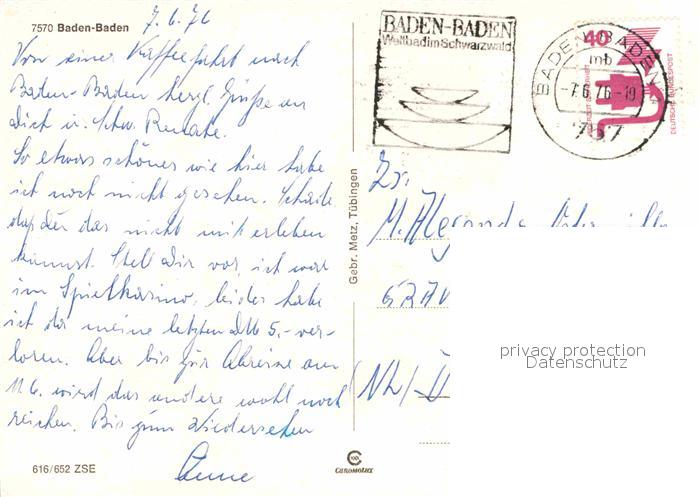 7570 Baden-Baden
7.6.76
Von einer Kaffeefahrt nach
Baden-Baden herzl. Grüße an
Dich u. Schw. Renate.
So etwas schönes wie hier habe
ich noch nicht gesehen. Schade
daß du das nicht miterleben
kannst. Stell Dir vor, ich war
im Spielkasino, leider habe
ich da meine letzten DM 5,- ver-
loren. Aber bis zur Abreise am
11.6. wird das andere wohl noch
reichen. Bis zum Wiedersehen
Änne
616/652 ZSE
Gebr. Metz, Tübingen
CHROMOLUX
BADEN-BADEN
Weltbad im Schwarzwald
BADEN-BADEN
mb
-7.6.76-19
757
40
DEUTSCHE BUNDESPOST
M.
privacy protection
Datenschutz